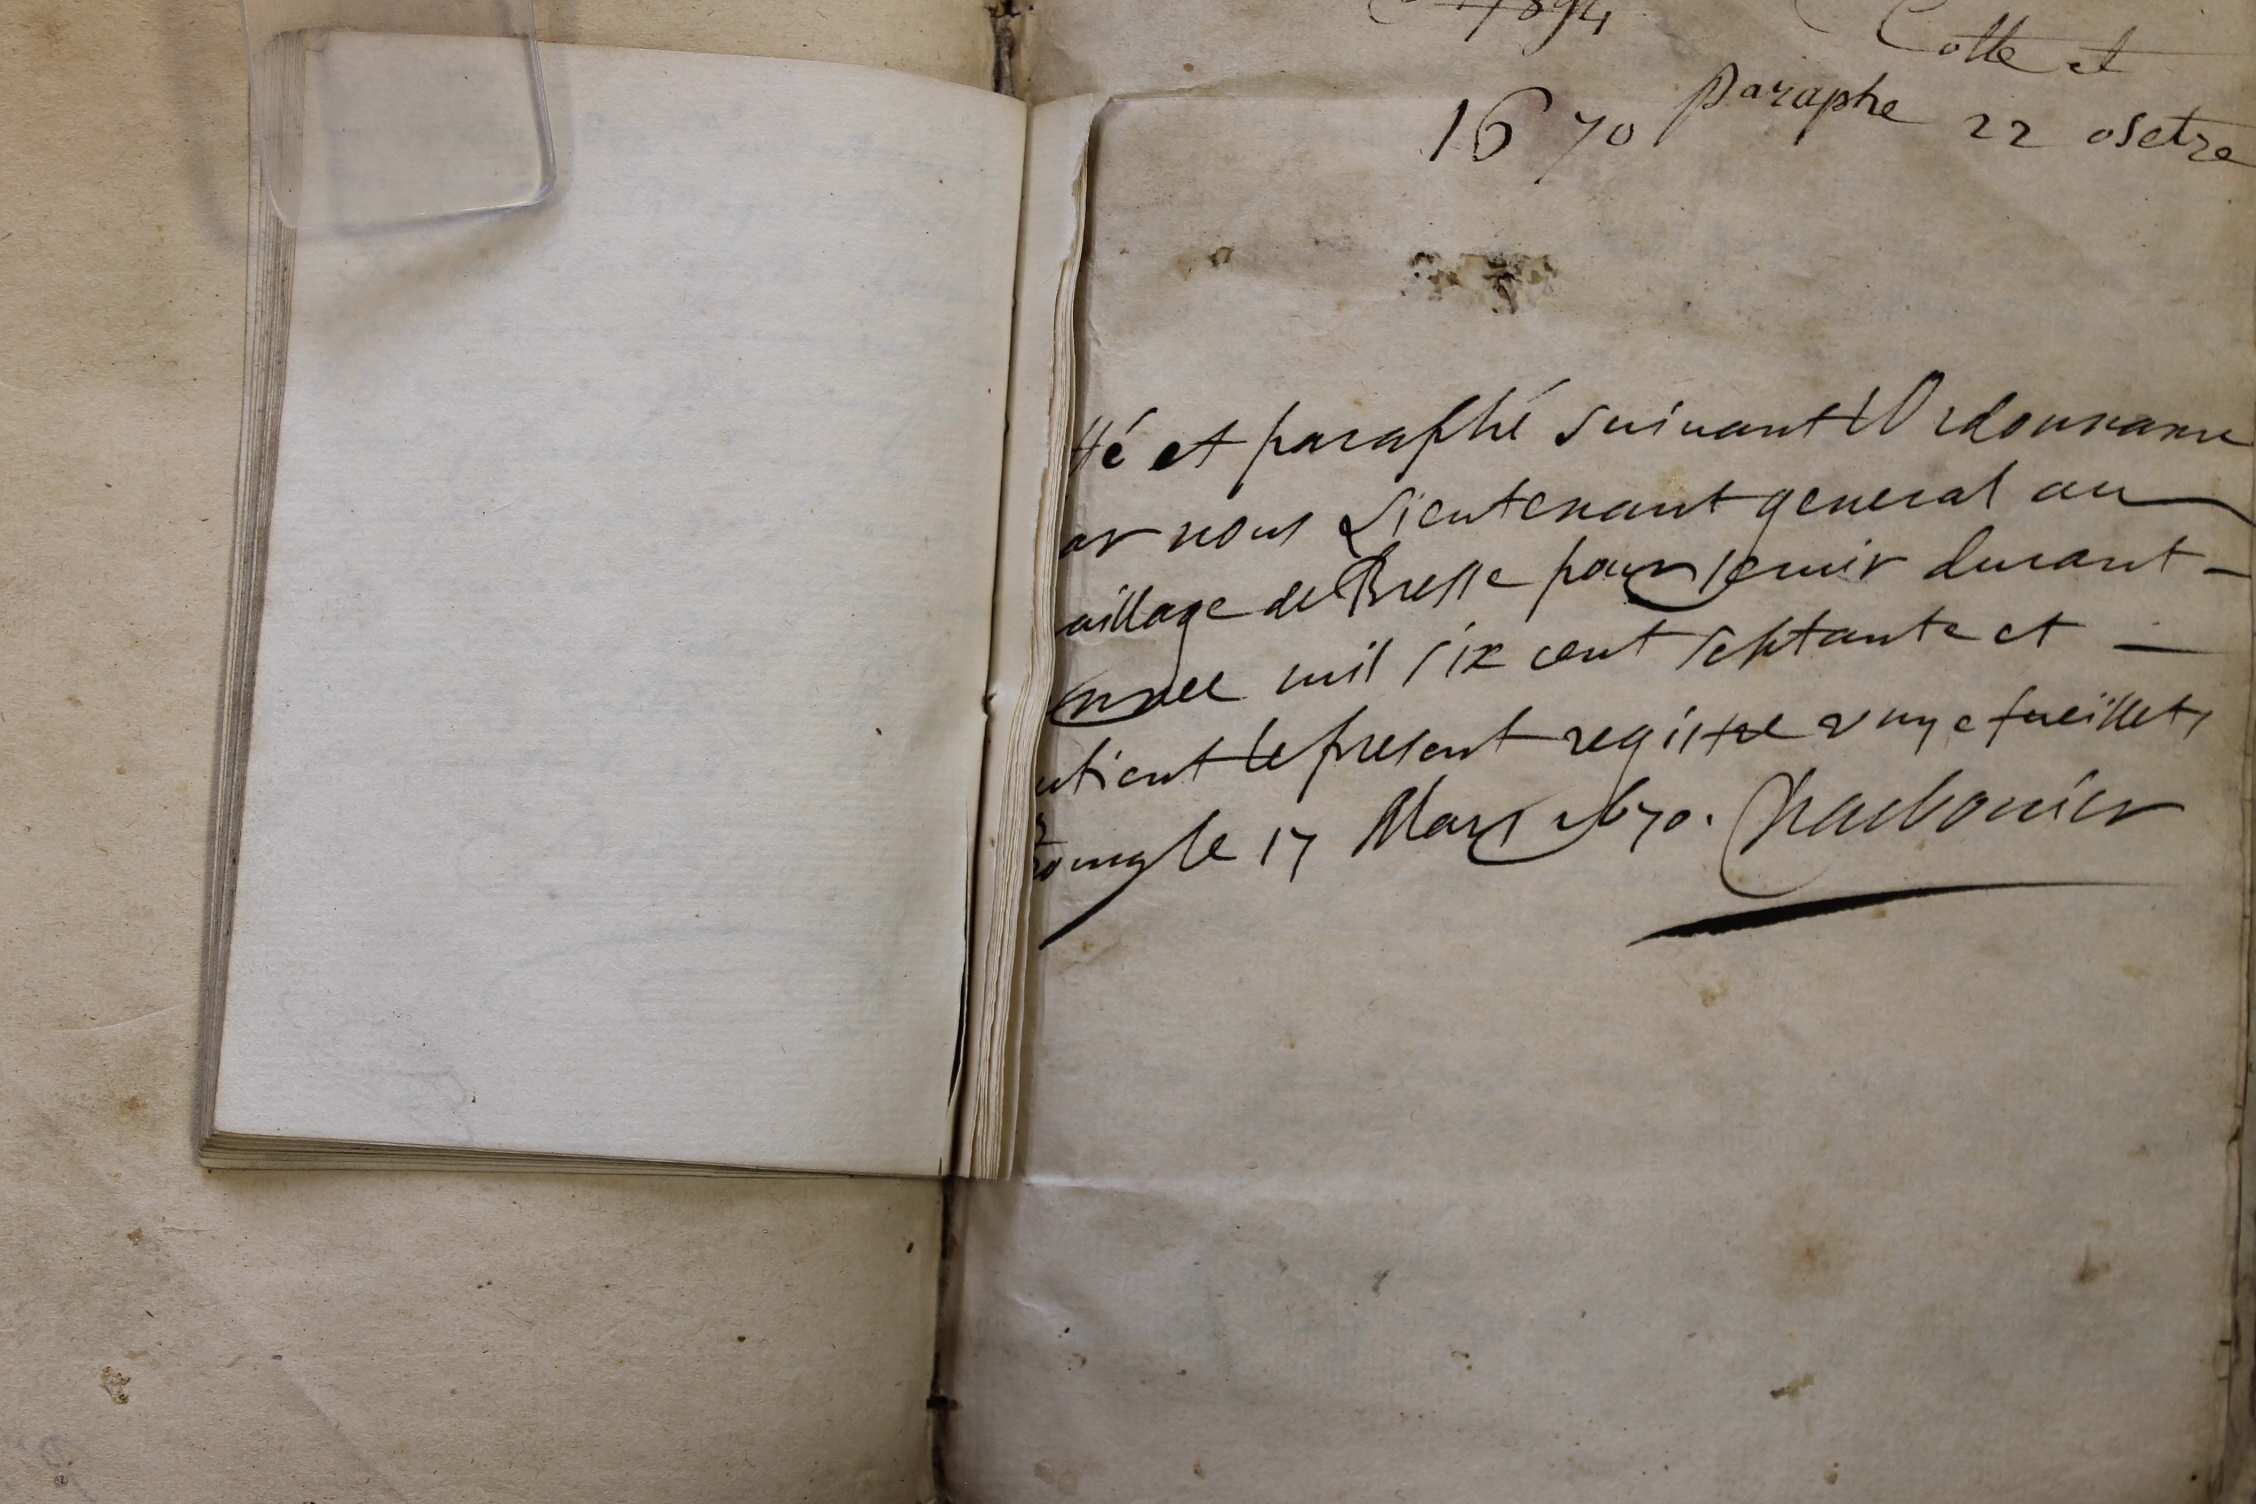 1894
Cotte et
1670 paraphe 22 osetre
tté et paraphé suivant l'Ordonnance
ar nous Lieutenant general au
aillage de Bresse pour servir durant
annee mil six cent septante et
ntient le present registre fueillets
Bourg le 17 Mars 1670. Charbonier